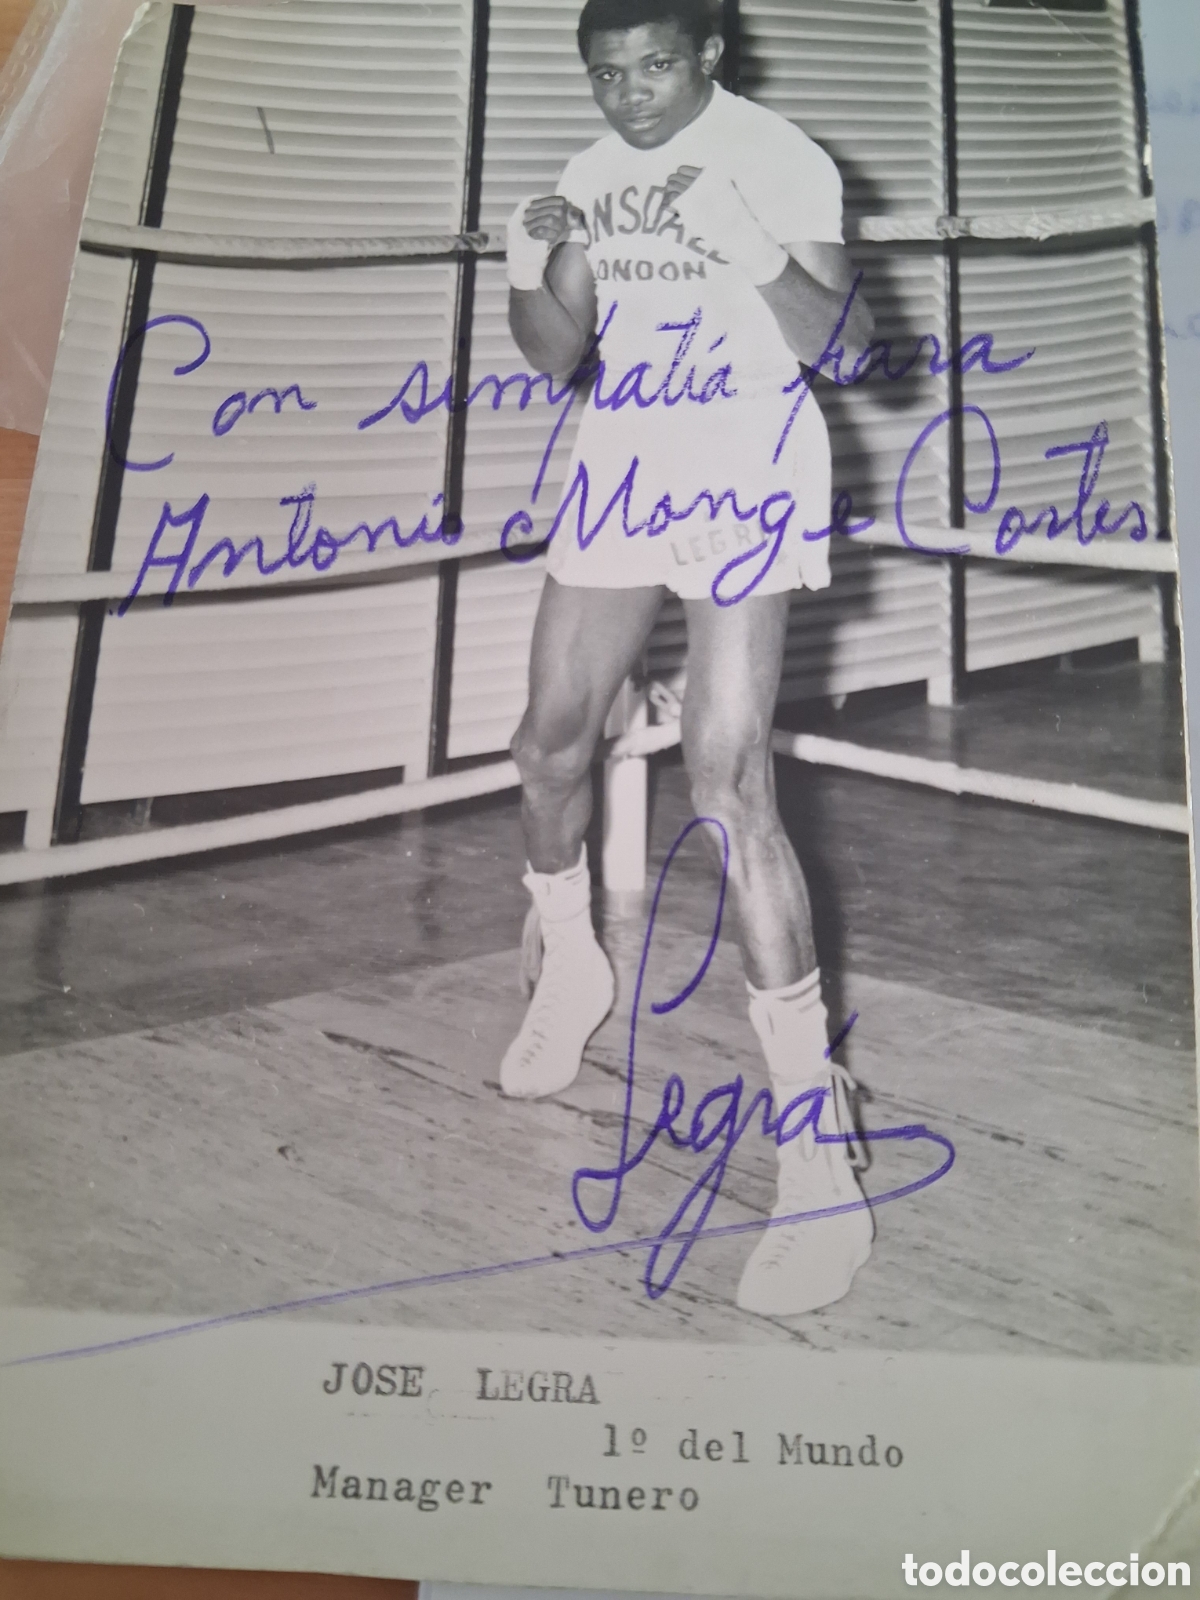 LONDON
Con simpatía para
Antonio Monge Cortes
LEGRA
Legrá
JOSE LEGRA
1º del Mundo
Manager Tunero
todocoleccion